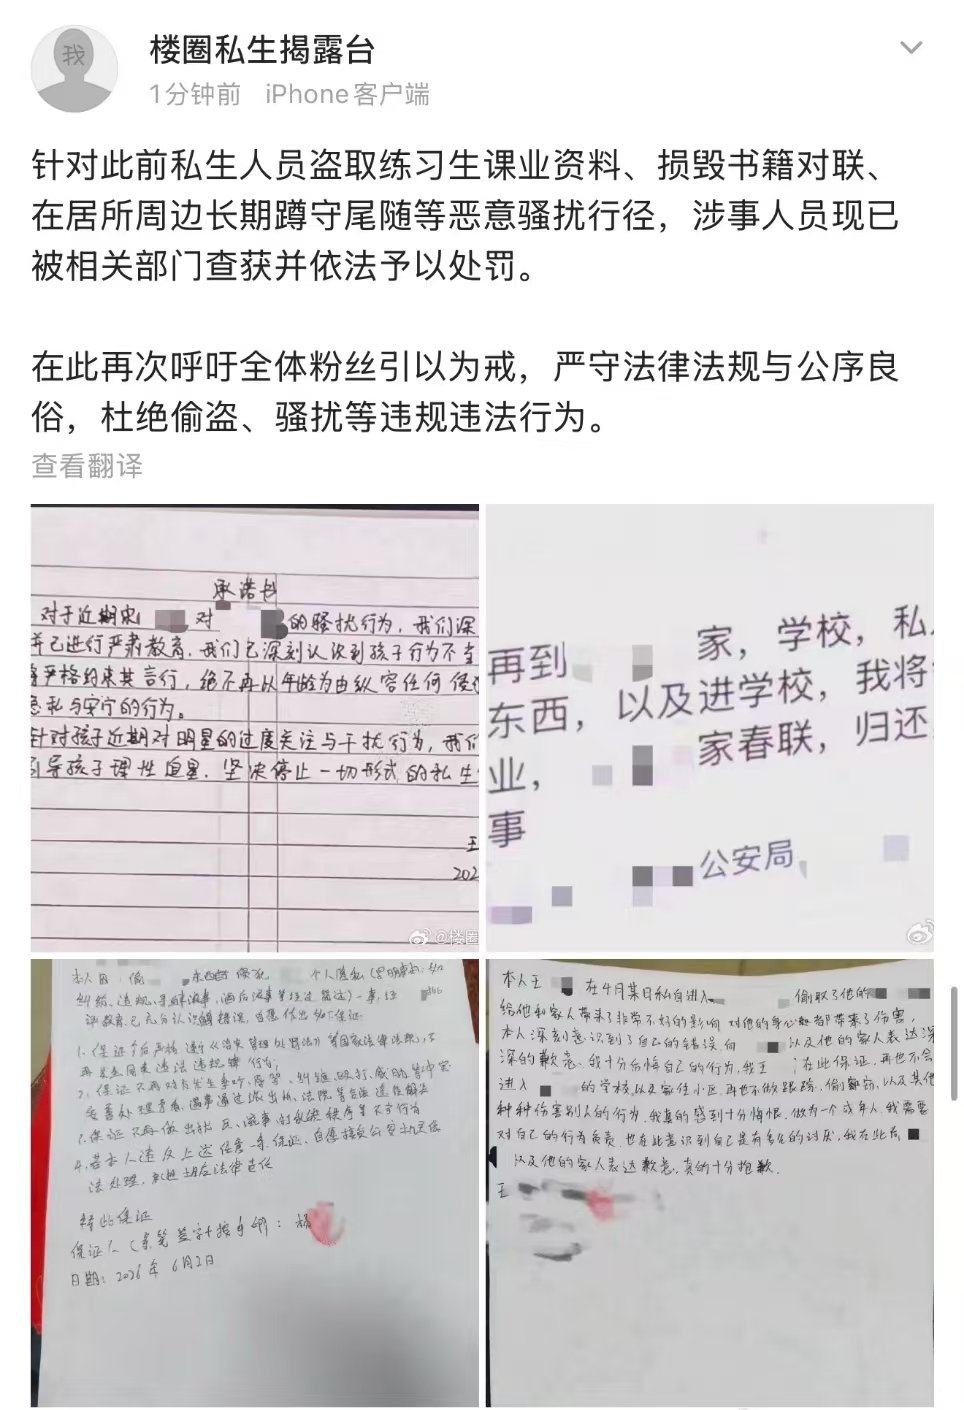 我
楼圈私生揭露台
1分钟前 iPhone客户端
针对此前私生人员盗取练习生课业资料、损毁书籍对联、
在居所周边长期蹲守尾随等恶意骚扰行径，涉事人员现已
被相关部门查获并依法予以处罚。
在此再次呼吁全体粉丝引以为戒，严守法律法规与公序良
俗，杜绝偷盗、骚扰等违规违法行为。
查看翻译
承诺书
对于近期宋 对 的骚扰行为，我们深
并已进行严肃教育，我们已深刻认识到孩子行为不当
将严格约束其言行，绝不再以年龄为由纵容任何侵
隐私与安宁的行为。
针对孩子近期对明星的过度关注与干扰行为，我们
引导孩子理性追星，坚决停止一切形式的私生
王
202
@楼圈
再到 家，学校，私
东西，以及进学校，我将
业， 家春联，归还
事
公安局
本人因 偷 东西 个人隐私
纠纷、违规
评教育，已充分认识错误，自愿作出如下保证：
1.保证今后严格遵守《治安管理处罚法》等国家法律法规，不
再发生同类违法违规行为；
2.保证不再对 发生争吵、辱骂、纠缠、殴打、威胁等冲突
妥善处理矛盾，遇事通过派出所、法院等合法途径解决
3.保证不再做出扰 秩序等不当行为
4.若本人违反上述任意一条保证，自愿接受公安机关依
法处理，承担相应法律责任
特此保证
保证人（亲笔签字+按手印）：杨
日期：2026年6月2日
本人王 在4月某日私自进入 偷取了他的
给他和家人带来了非常不好的影响 对他的身心都带来了伤害，
本人深刻意识到了自己的错误，向 以及他的家人表达深
深的歉意，我十分后悔自己的行为，我王 在此保证，再也不会
进入 的学校以及家住小区，再也不做跟踪，偷窃，以及其他
种种伤害别人的行为，我真的感到十分悔恨，做为一个成年人，我需要
对自己的行为负责，也在此意识到自己是有多么的讨厌，我在此向
以及他的家人表达歉意，真的十分抱歉．
王